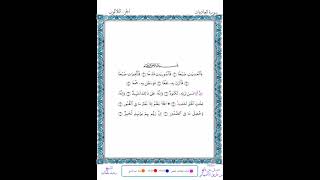 سورة العاديات
الجزء الثلاثون
بِسْمِ اللَّهِ الرَّحْمَٰنِ الرَّحِيمِ
وَالْعَادِيَاتِ ضَبْحًا ١ فَالْمُورِيَاتِ قَدْحًا ٢ فَالْمُغِيرَاتِ صُبْحًا
٣ فَأَثَرْنَ بِهِ نَقْعًا ٤ فَوَسَطْنَ بِهِ جَمْعًا ٥
إِنَّ الْإِنسَانَ لِرَبِّهِ لَكَنُودٌ ٦ وَإِنَّهُ عَلَىٰ ذَٰلِكَ لَشَهِيدٌ ٧ وَإِنَّهُ
لِحُبِّ الْخَيْرِ لَشَدِيدٌ ٨ أَفَلَا يَعْلَمُ إِذَا بُعْثِرَ مَا فِي الْقُبُورِ ٩
وَحُصِّلَ مَا فِي الصُّدُورِ ١٠ إِنَّ رَبَّهُم بِهِمْ يَوْمَئِذٍ لَّخَبِيرٌ ١١